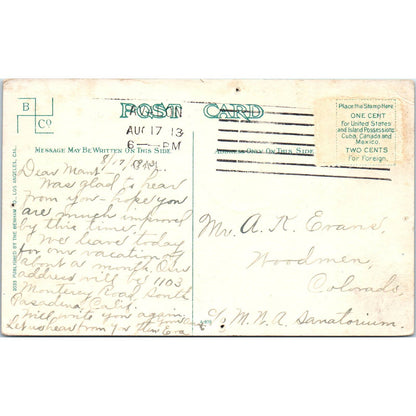 B
Co
POST CARD
AUG 17 13
6 PM
Place the Stamp Here
ONE CENT
for United States
and Island Possessions
Cuba, Canada and
Mexico.
TWO CENTS
For Foreign.
MESSAGE MAY BE WRITTEN ON THIS SIDE
ONLY ON THIS SIDE
8/17/1913.
Dear
Was glad to hear
from you - hope you
are much improved
by this time.
We leave today
for our vacation of
about a month. Our
address will be 1103
Monterey Road, South
Pasadena, Calif.
Will write you again.
Let us hear from you
Mr. A. R. Evans,
Woodmen,
Colorado,
c/o M. W. A. Sanatorium.
PUBLISHED BY THE BENHAM CO., LOS ANGELES, CAL.